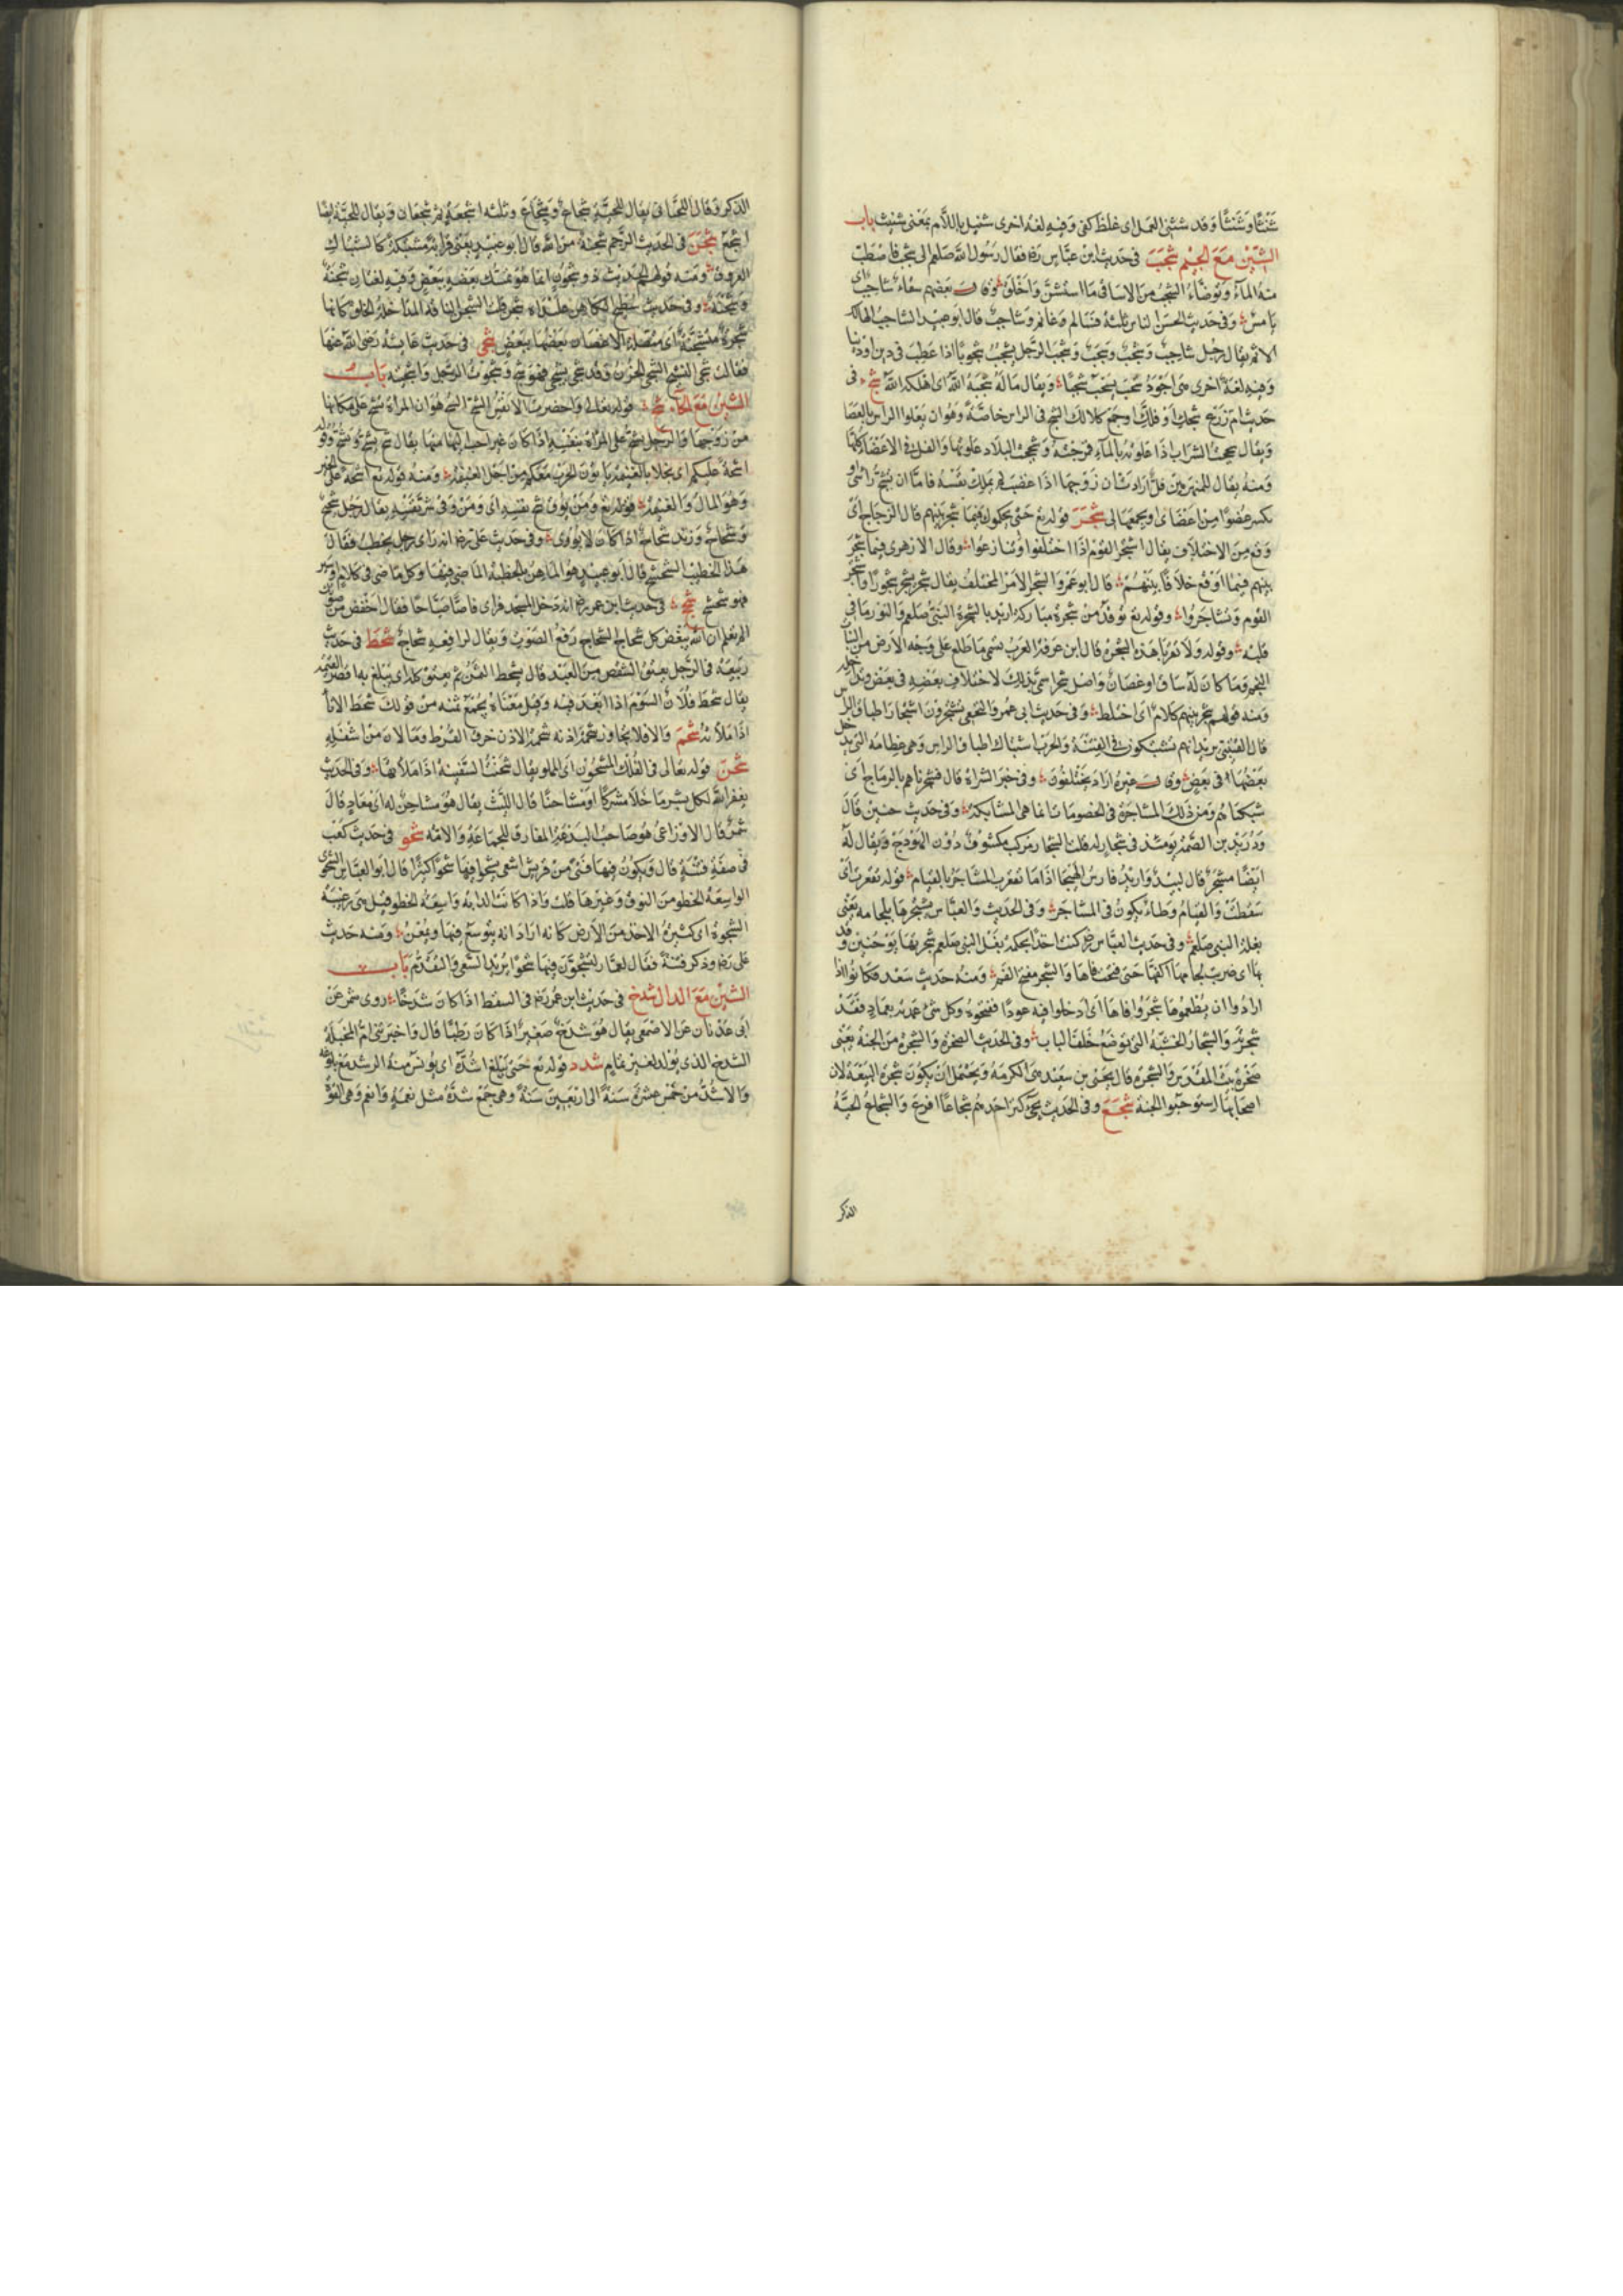 شَثَنًا وَشَثِنًا وَقد شثن العمل اى غلظ كفى وَفيه لغه اخرى شثيل باللّام بمعنى شثيث باب
الشِّيْن مَعَ الجيْم شَجَبَ فى حَديث ابن عبَّاس رض فقال رَسُول الله صلعم الى شجب فاصطب
منهُ المآءَ وتوضّاءَ الشجبُ من الاساقى مَا استشنَّ وَاخلق وَقال بعضهم سقاء شاجب اى
يَابسٌ وَفى حَديث الحسَن الناس ثلثة فسَالم وَغانم وَشاجب قال ابو عبيد الشاجب الهالك
الاثم يقال رجل شاجب وَشجب وَشجب الرَّجل يشجب شجوبًا اذا عطب فى دين او دنيا
وَفيه لغة اخرى هى اجوَدُ شجب يشجب شجبًا وَيقال مَا له شجبَهُ اللهُ اى اهلكه الله شج فى
حَديث ام زرع شجك او فلك او جمع كلا لك الشج فى الراس خاصّة وَهُو ان يعلو الراس بالعصَا
وَيقال شججت الشراب اذا علوته بالمآءِ فمزجته وَشججت البلاد علوتها والفل فى الاعضاء كلها
وَمنه يقال للمنهزمين فلّ ارادت ان زوجها اذا غضب لم يملك نفسه فاما ان يشج راسى او
يكسر عضوًا من اعضاى او يجمعها لى شَجَرَ قوله تع حتى يحكموك فيما شجر بينهم قال الزجاج اى
وَقع من الاختلاف يقال اشتجر القوم اذا اختلفوا وتنازعوا وقال الازهرى فيما شجر
بينهم فيما اوقع خلافًا بينهم قال ابو عمرو الشجر الامر المختلف يقال شجر يشجر شجورًا وَاشتجر
القوم وَتشاجروا وقوله تع توقد من شجرة مباركة اريد بالشجرة النبى صلعم والنور ما فى
قلبه وقوله ولا تقربا هذه الشجرة قال ابن عرفة العرب تسمى ما طلع على وجه الارض من النبات
النجم وَما كان له ساق او غصان وَاصل شجرا سمى بذلك لاختلاف بعضه فى بعض وتداخله
ومنه قولهم شجر بينهم كلام اى اختلط وَفى حَديث ابى عمرو النخعى يشتجرون اشتجار اطباق الراس
قال القتيبى يريد انهم يشتبكون فى الفتنة والحرب اشتباك اطباق الراس وهى عظامه التى يدخل
بَعضها فى بعض وقال غيره اراد يختلفون وفى خبر الشراة قال فشجرناهم بالرماح اى
شبكناهم وَمن ذلك المشاجرة فى الخصومات انما هى المشابكة وفى حديث حنين قال
وَدُرَيْد بن الصّمّة يومئذ فى شجار له قلت الشجار مركب مكشوف دون الهودج وَيقال له
ايضًا مشجر قال لبيد وَاربد فارس الهيجا اذا ما تقعرت المشاجر بالفيام قوله تقعرت اى
سقطت وَالفيام وطاء يكون فى المشاجر وَفى الحديث وَالعباس يشجرها بلجامه يعنى
بغلة النبى صلعم وفى حديث العباس رض كنت اخذا بحكمة بغل النبى صلعم شجرتها يوم حنين وقد
بها اى ضربت بلجامها اكفها حتى فتحت فاها وَالشجر مفتح الفم وَمنه حديث سعد فكانوا اذا
ارادوا ان يطعموها شجروا فاها اى ادخلوا فيه عودًا ففتحوه وكل شئ عمدته بعماد فقد
شجرته وَالشجار الخشبة التى توضع خلف الباب وفى الحديث الصخرة وَالشجرة من الجنة يعنى
صخرة بيت المقدس وَالشجرة قال يحيى بن سعيد هى الكرمة وَيحتمل ان يكون شجرة البيعة لان
اصحابها استوجبوا الجنة شَجَعَ وفى الحديث يجئ كنز احدهم شجاعًا اقرع وَالشجاع الحيّة
الذكر
الذكر وَقال اللحيانى يقال للحيّة شجاع وشجاع وثلثه اشجعة ثم شجعان وَيقال للحيّة ايضا
اشجع شَجَنَ فى الحديث الرّحم شجنة من الله قال ابو عبيد يعنى قرابة مشتبكة كاشتباك
العروق ومنه قولهم الحديث ذو شجون انما هو تمسك بعضه ببعض وفيه لغتان شجنة
وَشجنة وفى حديث سطيح الكاهن علنداة شجن قلت الشجن الناقة المداخلة الخلق كانها
شجرة متشجنة اى متصلة الاغصان بعضها ببعض شجى فى حَديث عايشة رضى الله عنها
فقالت شجى النشيج الشجى الحزن وَقد شجى يشجى فهو شج وَشجوت الرّجل وَاشجيته بَاب
الشيْن مَعَ الحآء شح قوله تعالى وَاحضرت الانفس الشح الشح هو ان المراة تشح على مكانها
من زوجها وَالرّجل يشح على المراة بنفسه اذا كان غيرها احب اليه منها يقال شح يشح وقوله
اشحة عليكم اى بخلا بالغنيمة يابون الحرب معكم من اجل الغنيمة ومنه قوله تع اشحة على الخير
وَهو المال وَالغنيمة قوله تع ومن يوق شح نفسه اى ومن وقى شر نفسه يقال رجل شحيح
وَشحاح وَزند شحاح اذا كان لا يورى وفى حديث على رض انه راى رجلا يخطب فقال
هذا الخطيب الشحشح قال ابو عبيد هو الماهر بالخطبة الماضى فيها وكل ماض فى كلام او سير
فهو شحشح شحج فى حديث ابن عمر رض انه دخل المسجد فراى قاصًا صيّاحًا فقال اخفض من صوتك
الم تعلم ان الله يبغض كل شحاج الشحاج رفع الصّوت وَيقال لرافعه شحاج شَحَط فى حَديث
ربيعة فى الرّجل يعتق الشقص من العبد قال يشحط الثمن ثم يعتق كله اى يبلغ به اقصى القيمة
يقال شحط فلان السوم اذا ابعد فيه وقيل معناه يجمع ثمنه من قولك شحط الاناأ
اذا ملأته شَحَمَ وَالافلا يجاوز شحمة اذنه شحمة الاذن خرق القرط وَمَا لان من اسفله
شَحَنَ قوله تعالى فى الفلك المشحون اى المملو يقال شحنت السفينة اذا ملأتها وفى الحديث
يغفر الله لكل بشر ما خلا مشركًا او مشاحنًا قال الليث يقال هو مشاحن له اى معاد قال
شمر قال الاوزاعى هو صاحب البدعة المفارق للجماعة والامّة شحو فى حديث كعب
فى صفة فتنة قال وَيكون فيها فتى من قريش اشمى يشحوا فيها شحوًا كثيرًا قال ابو العباس الشحو
الواسعة الخطو من النوق وَغيرها قلت وَاذا كانت الدابة واسعة الخطو قيل هى رغيبة
الشحوة اى كثيرة الاخذ من الارض كانه اراد انه يتوسع فيها ويمعن ومنه حديث
على رض وذكر فتنة فقال لعمّار لتشحوَنّ فيها شحوًا يريد السّعى وَالتقدّم بَاب
الشيْن مَعَ الدال شدخ فى حديث ابن عمر رض فى السقط اذا كان شدخًا روى شمر عَن
ابى عدنان عن الاصمعى يقال هو شدخ صغير اذا كان رطبًا قال وَاخبرتنى ام المخبلة
الشدخ الذى يولد لغير تمام شدد قوله تع حتى يبلغ اشده اى يونس منه الرشد مع بلوغه
وَالاشدّ من خمس عشرة سنة الى اربعين سنة وهى جمع شدّة مثل نعمة وَانعم وهى القوّة